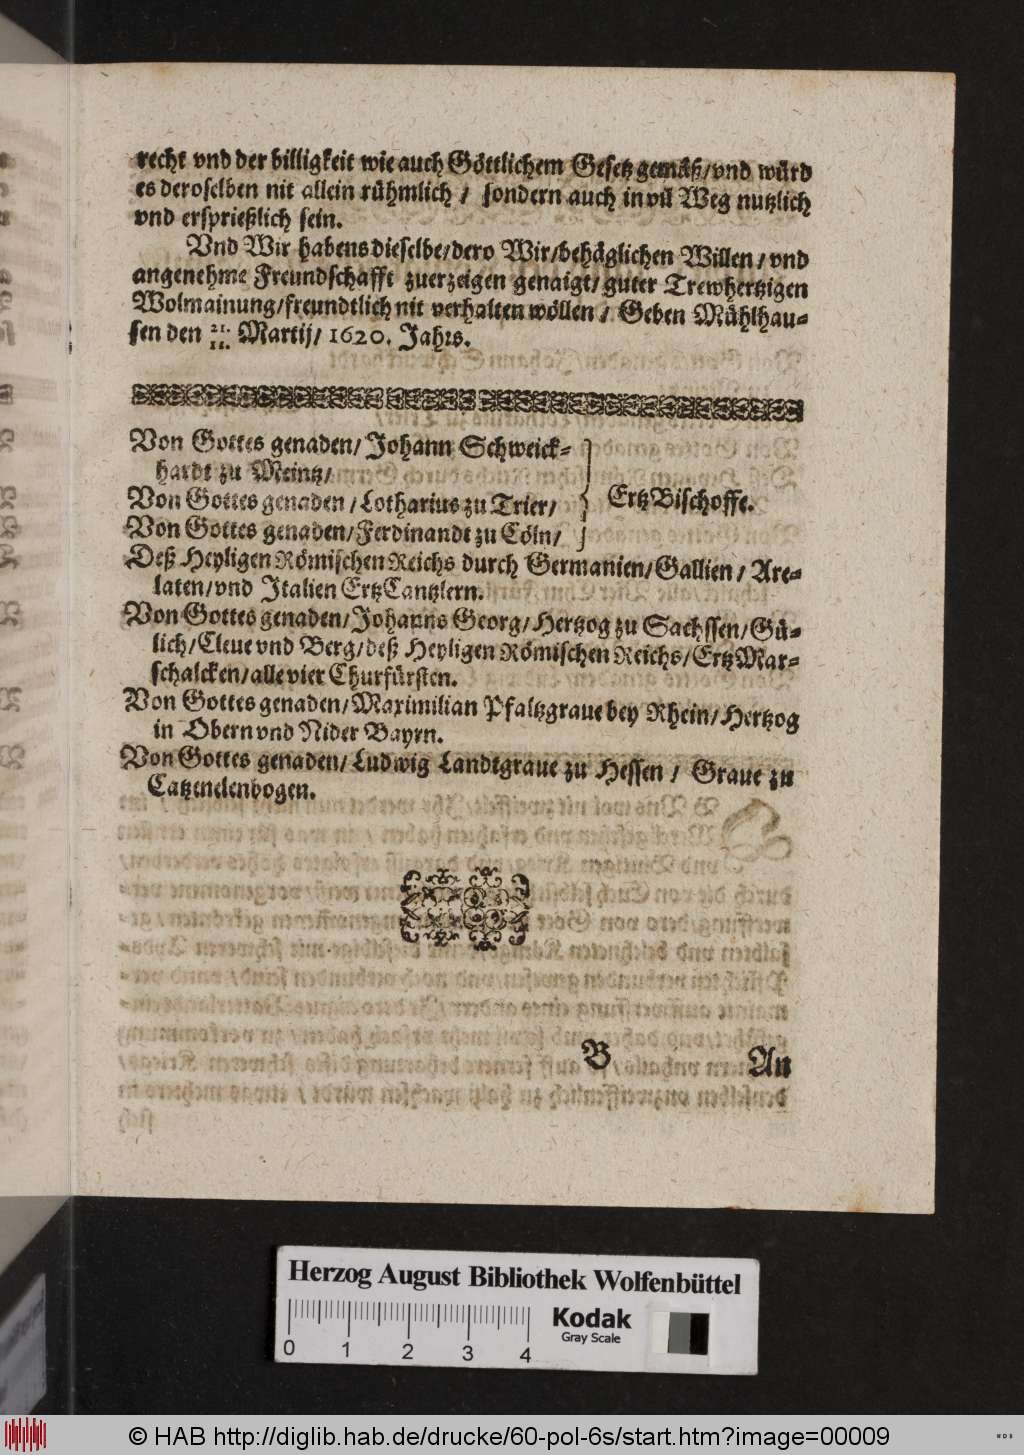 recht vnd der billigkeit wie auch Göttlichem Gesetz gemäß/vnd würd
es deroselben nit allein rühmlich / sondern auch in vil Weg nutzlich
vnd ersprießlich sein.
Vnd Wir habens dieselbe/dero Wir/behäglichen Willen / vnd
angenehme Freundschafft zuerzeigen genaigt/ guter Trewhertzigen
Wolmainung/freundtlich nit verhalten wöllen / Geben Mühlhau-
sen den 21./11. Martij/ 1620. Jahrs.
Von Gottes genaden/ Johann Schweick-
hardt zu Meintz/
Von Gottes genaden / Lotharius zu Trier/
ErtzBischoffe.
Von Gottes genaden/Ferdinandt zu Cöln/
Deß Heyligen Römischen Reichs durch Germanien/Gallien / Are-
laten/vnd Italien ErtzCantzlern.
Von Gottes genaden/Johanns Georg/ Hertzog zu Sachssen/Gü-
lich/Cleue vnd Berg/deß Heyligen Römischen Reichs/ErtzMar-
schalcken/alle vier Churfürsten.
Von Gottes genaden/Maximilian Pfaltzgraue bey Rhein/Hertzog
in Obern vnd Nider Bayrn.
Von Gottes genaden/ Ludwig Landtgraue zu Hessen / Graue zu
Catzenelenbogen.
B An
Herzog August Bibliothek Wolfenbüttel
0 1 2 3 4
Kodak
Gray Scale
© HAB http://diglib.hab.de/drucke/60-pol-6s/start.htm?image=00009